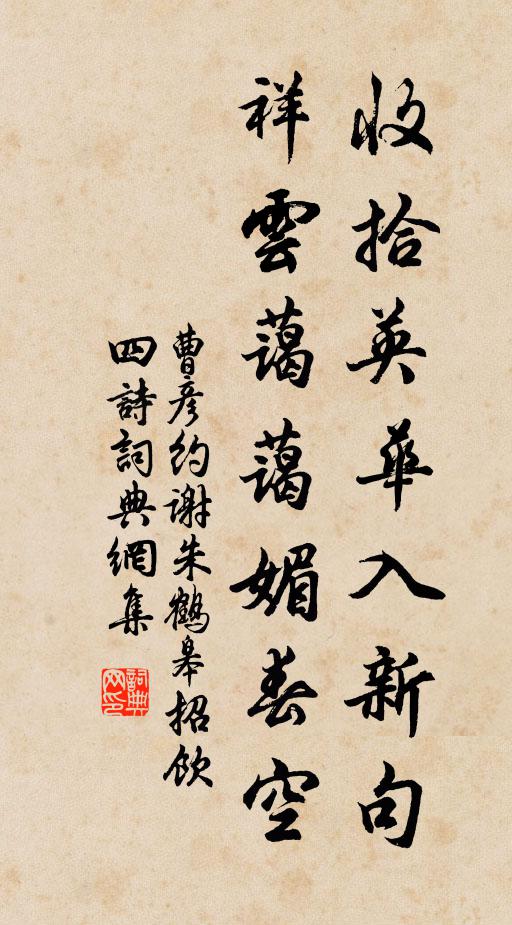 收拾英華入新句
祥雲藹藹媚春空
曹彥約謝朱鶴皋招飲
四詩詞典網集
詞典網印